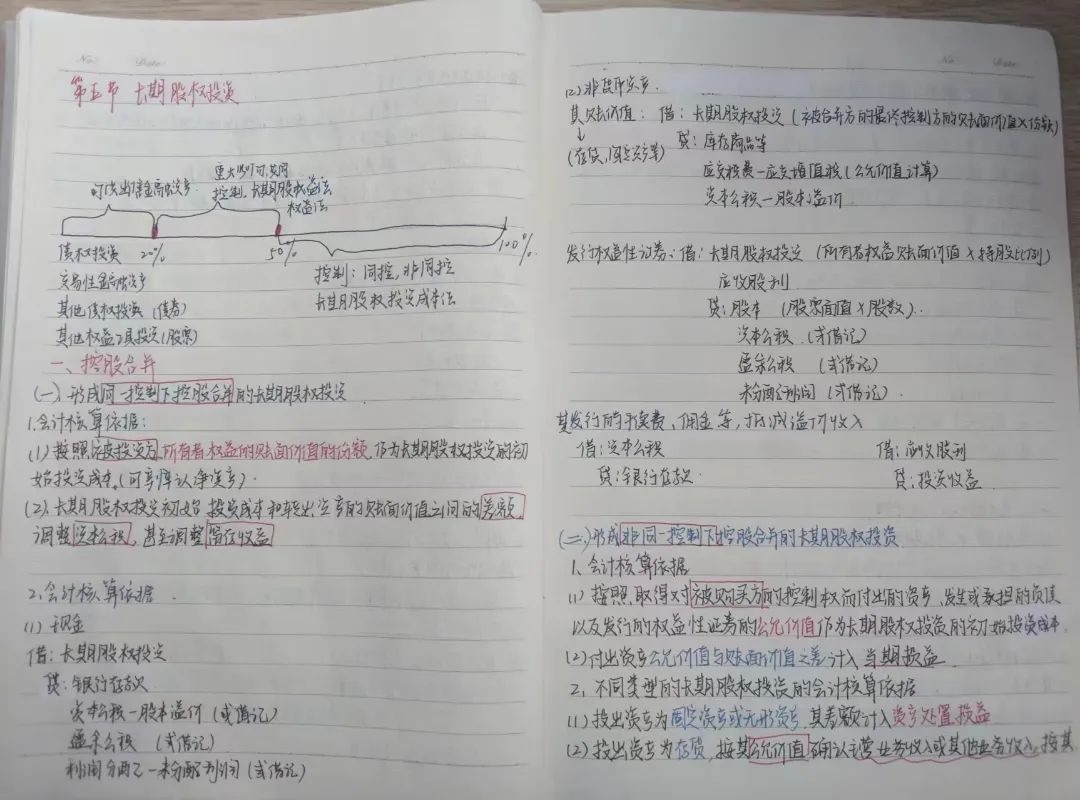 No. Date
第五节 长期股权投资
重大影响,共同
可供出售金融资产 控制,长期股权投资
权益法
20% 50% 100%
债权投资
交易性金融资产
其他债权投资(债券)
其他权益工具投资(股票)
控制:同控,非同控
长期股权投资成本法
一、控股合并
(一)形成同一控制下控股合并的长期股权投资
1.会计核算依据:
(1)按照被投资方所有者权益的账面价值的份额,作为长期股权投资的初
始投资成本。(可辨认净资产)
(2)长期股权投资初始投资成本和转出资产的账面价值之间的差额,
调整资本公积,甚至调整留存收益
2.会计核算依据
(1)现金
借:长期股权投资
贷:银行存款
资本公积-股本溢价(或借记)
盈余公积 (或借记)
利润分配-未分配利润(或借记)
No. Date
(2)非货币资产
其账面价值:借:长期股权投资(被合并方的最终控制方的账面价值×份额)
↓
(存货,固定资产等) 贷:库存商品等
应交税费-应交增值税(公允价值计算)
资本公积-股本溢价
发行权益性证券:借:长期股权投资(所有者权益账面价值×持股比例)
应收股利
贷:股本 (股票面值×股数)
资本公积 (或借记)
盈余公积 (或借记)
未分配利润 (或借记)
其发行的手续费、佣金等,抵减溢价收入
借:资本公积 借:应收股利
贷:银行存款 贷:投资收益
(二)形成非同一控制下控股合并的长期股权投资
1、会计核算依据
(1)按照取得对被购买方的控制权而付出的资产、发生或承担的负债
以及发行的权益性证券的公允价值作为长期股权投资的初始投资成本
(2)付出资产公允价值与账面价值之差计入当期损益
2、不同类型的长期股权投资的会计核算依据
(1)投出资产为固定资产或无形资产,其差额计入资产处置损益
(2)投出资产为存货,按其公允价值确认主营业务收入或其他业务收入,按其